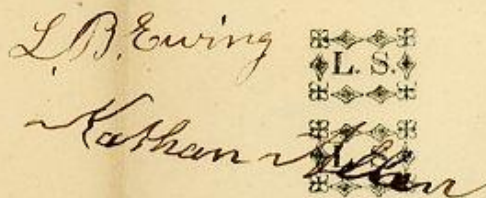 L. B. Ewing L. S.
Nathan Allen